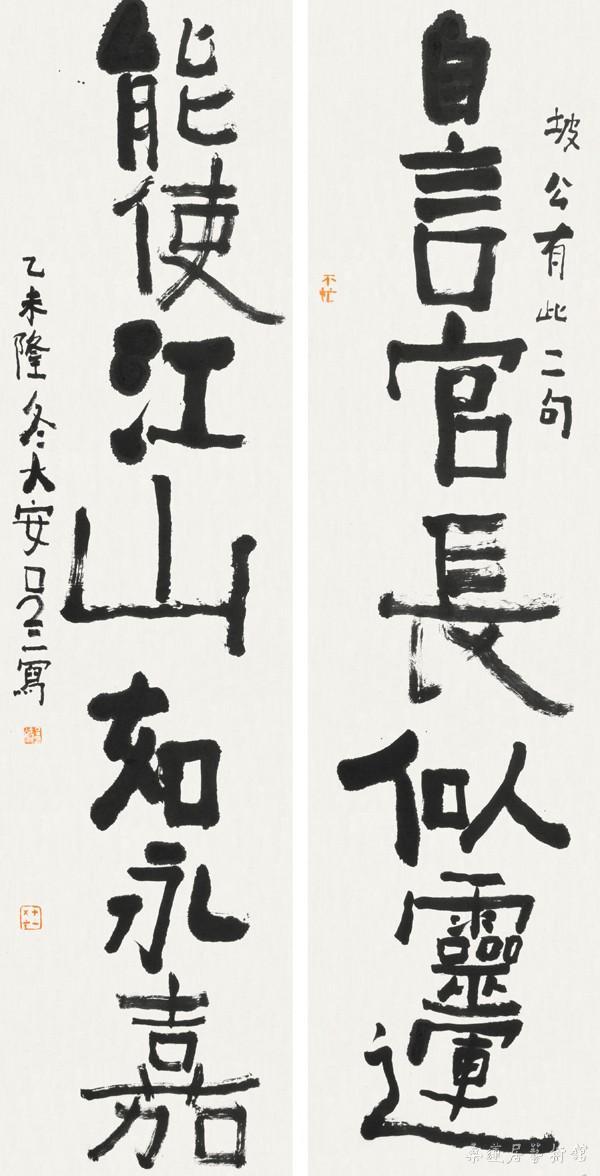 坡公有此二句
自言官長似靈運
不忙
能使江山如永嘉
乙未隆冬大安
三寫
桑蓮居藝術館